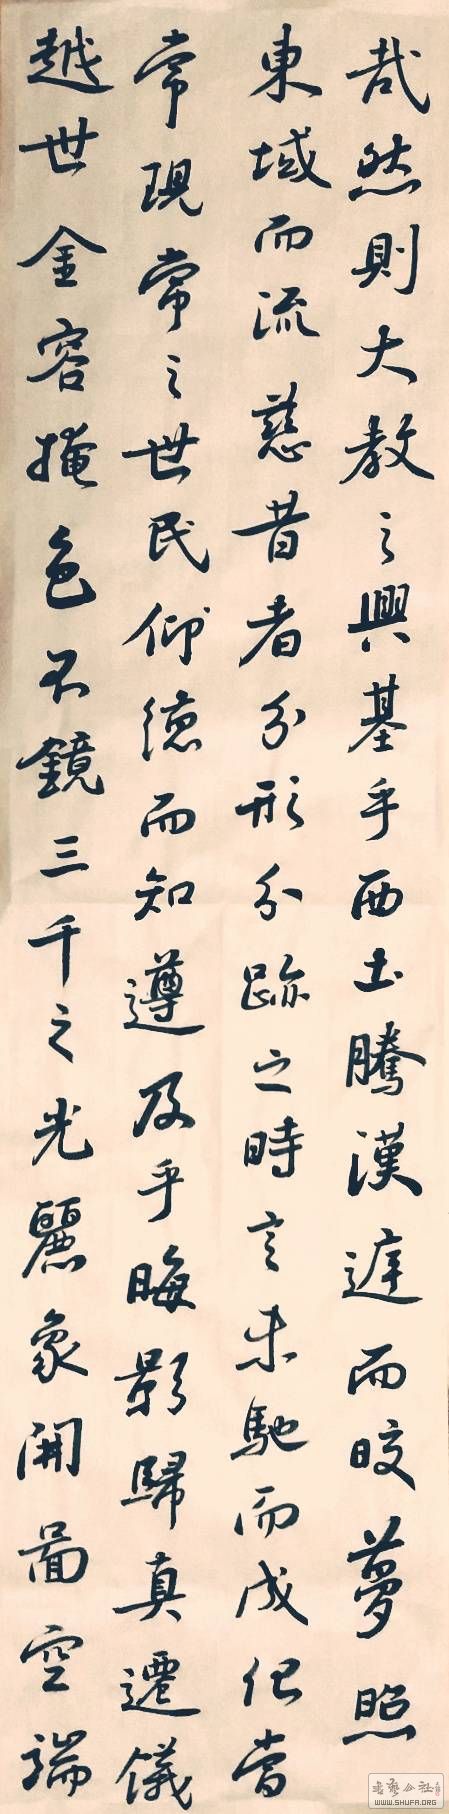 哉然則大教之興基乎西土騰漢遅而皎夢照
東域而流慈昔者分形分跡之時言未馳而成化當
常現常之世民仰德而知遵及乎晦影歸真遷儀
越世金容掩色不鏡三千之光麗象開圖空端
書藝公社
WWW.SHUFA.ORG